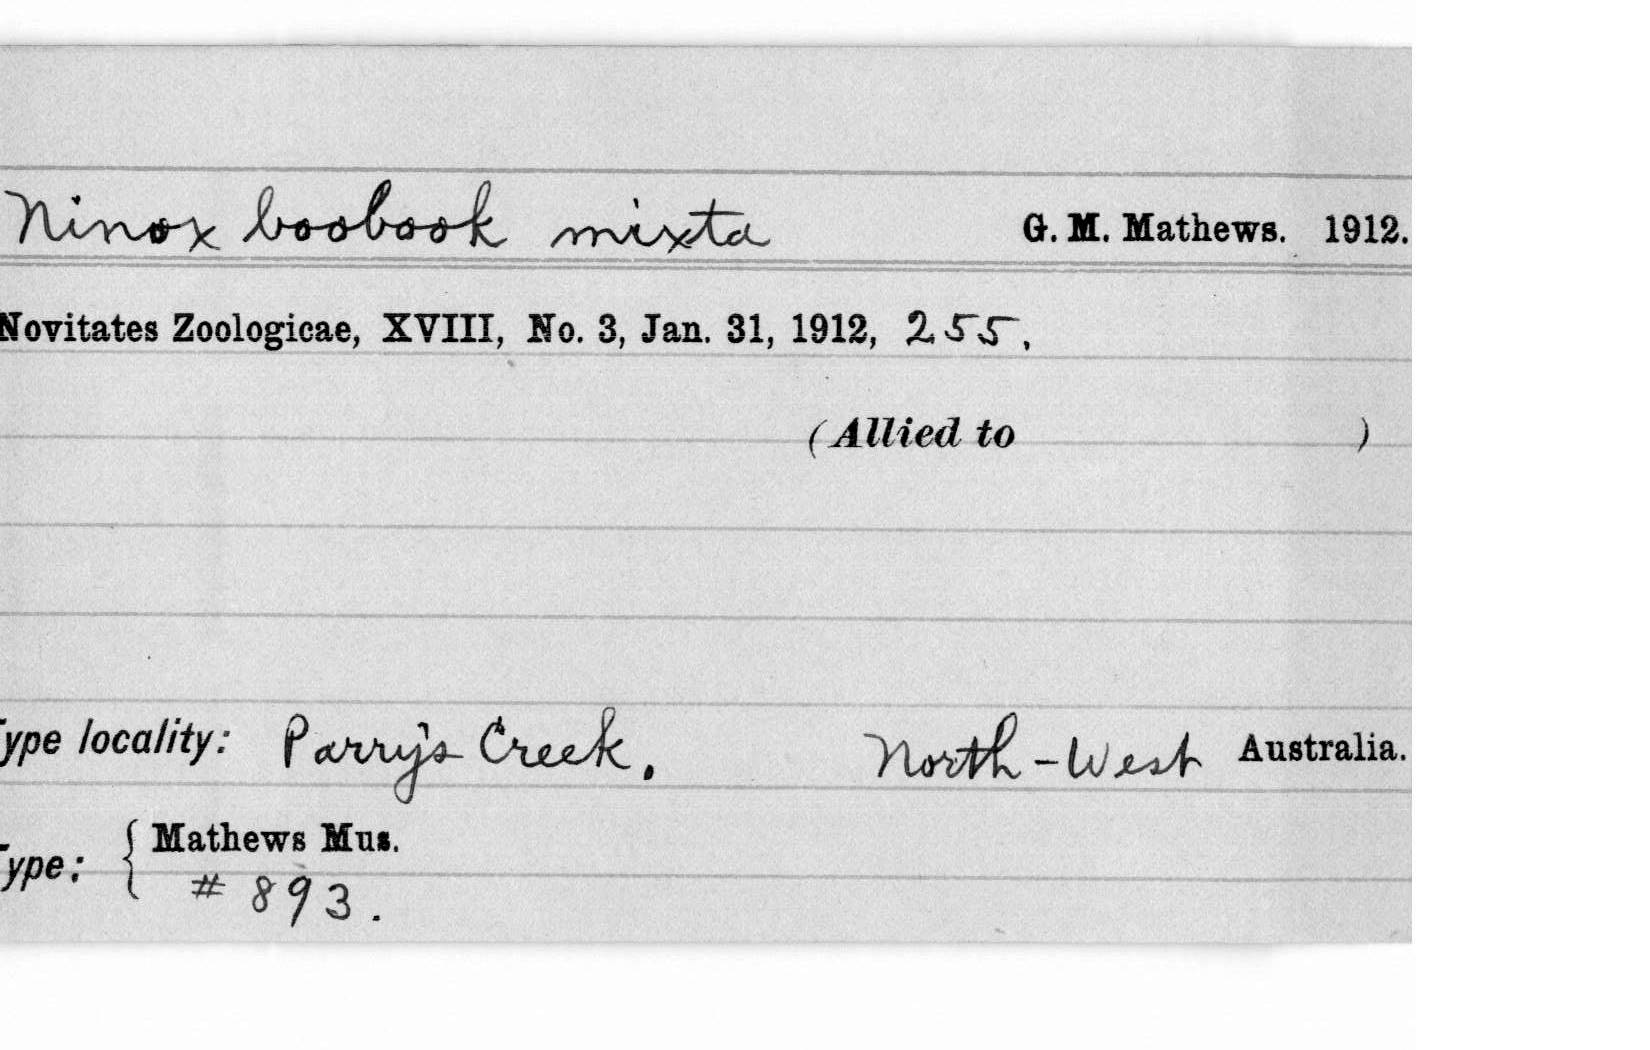 Ninox boobook mixta G. M. Mathews. 1912.
Novitates Zoologicae, XVIII, No. 3, Jan. 31, 1912, 255.
(Allied to )
Type locality: Parry's Creek, North-West Australia.
Type: { Mathews Mus.
# 893.